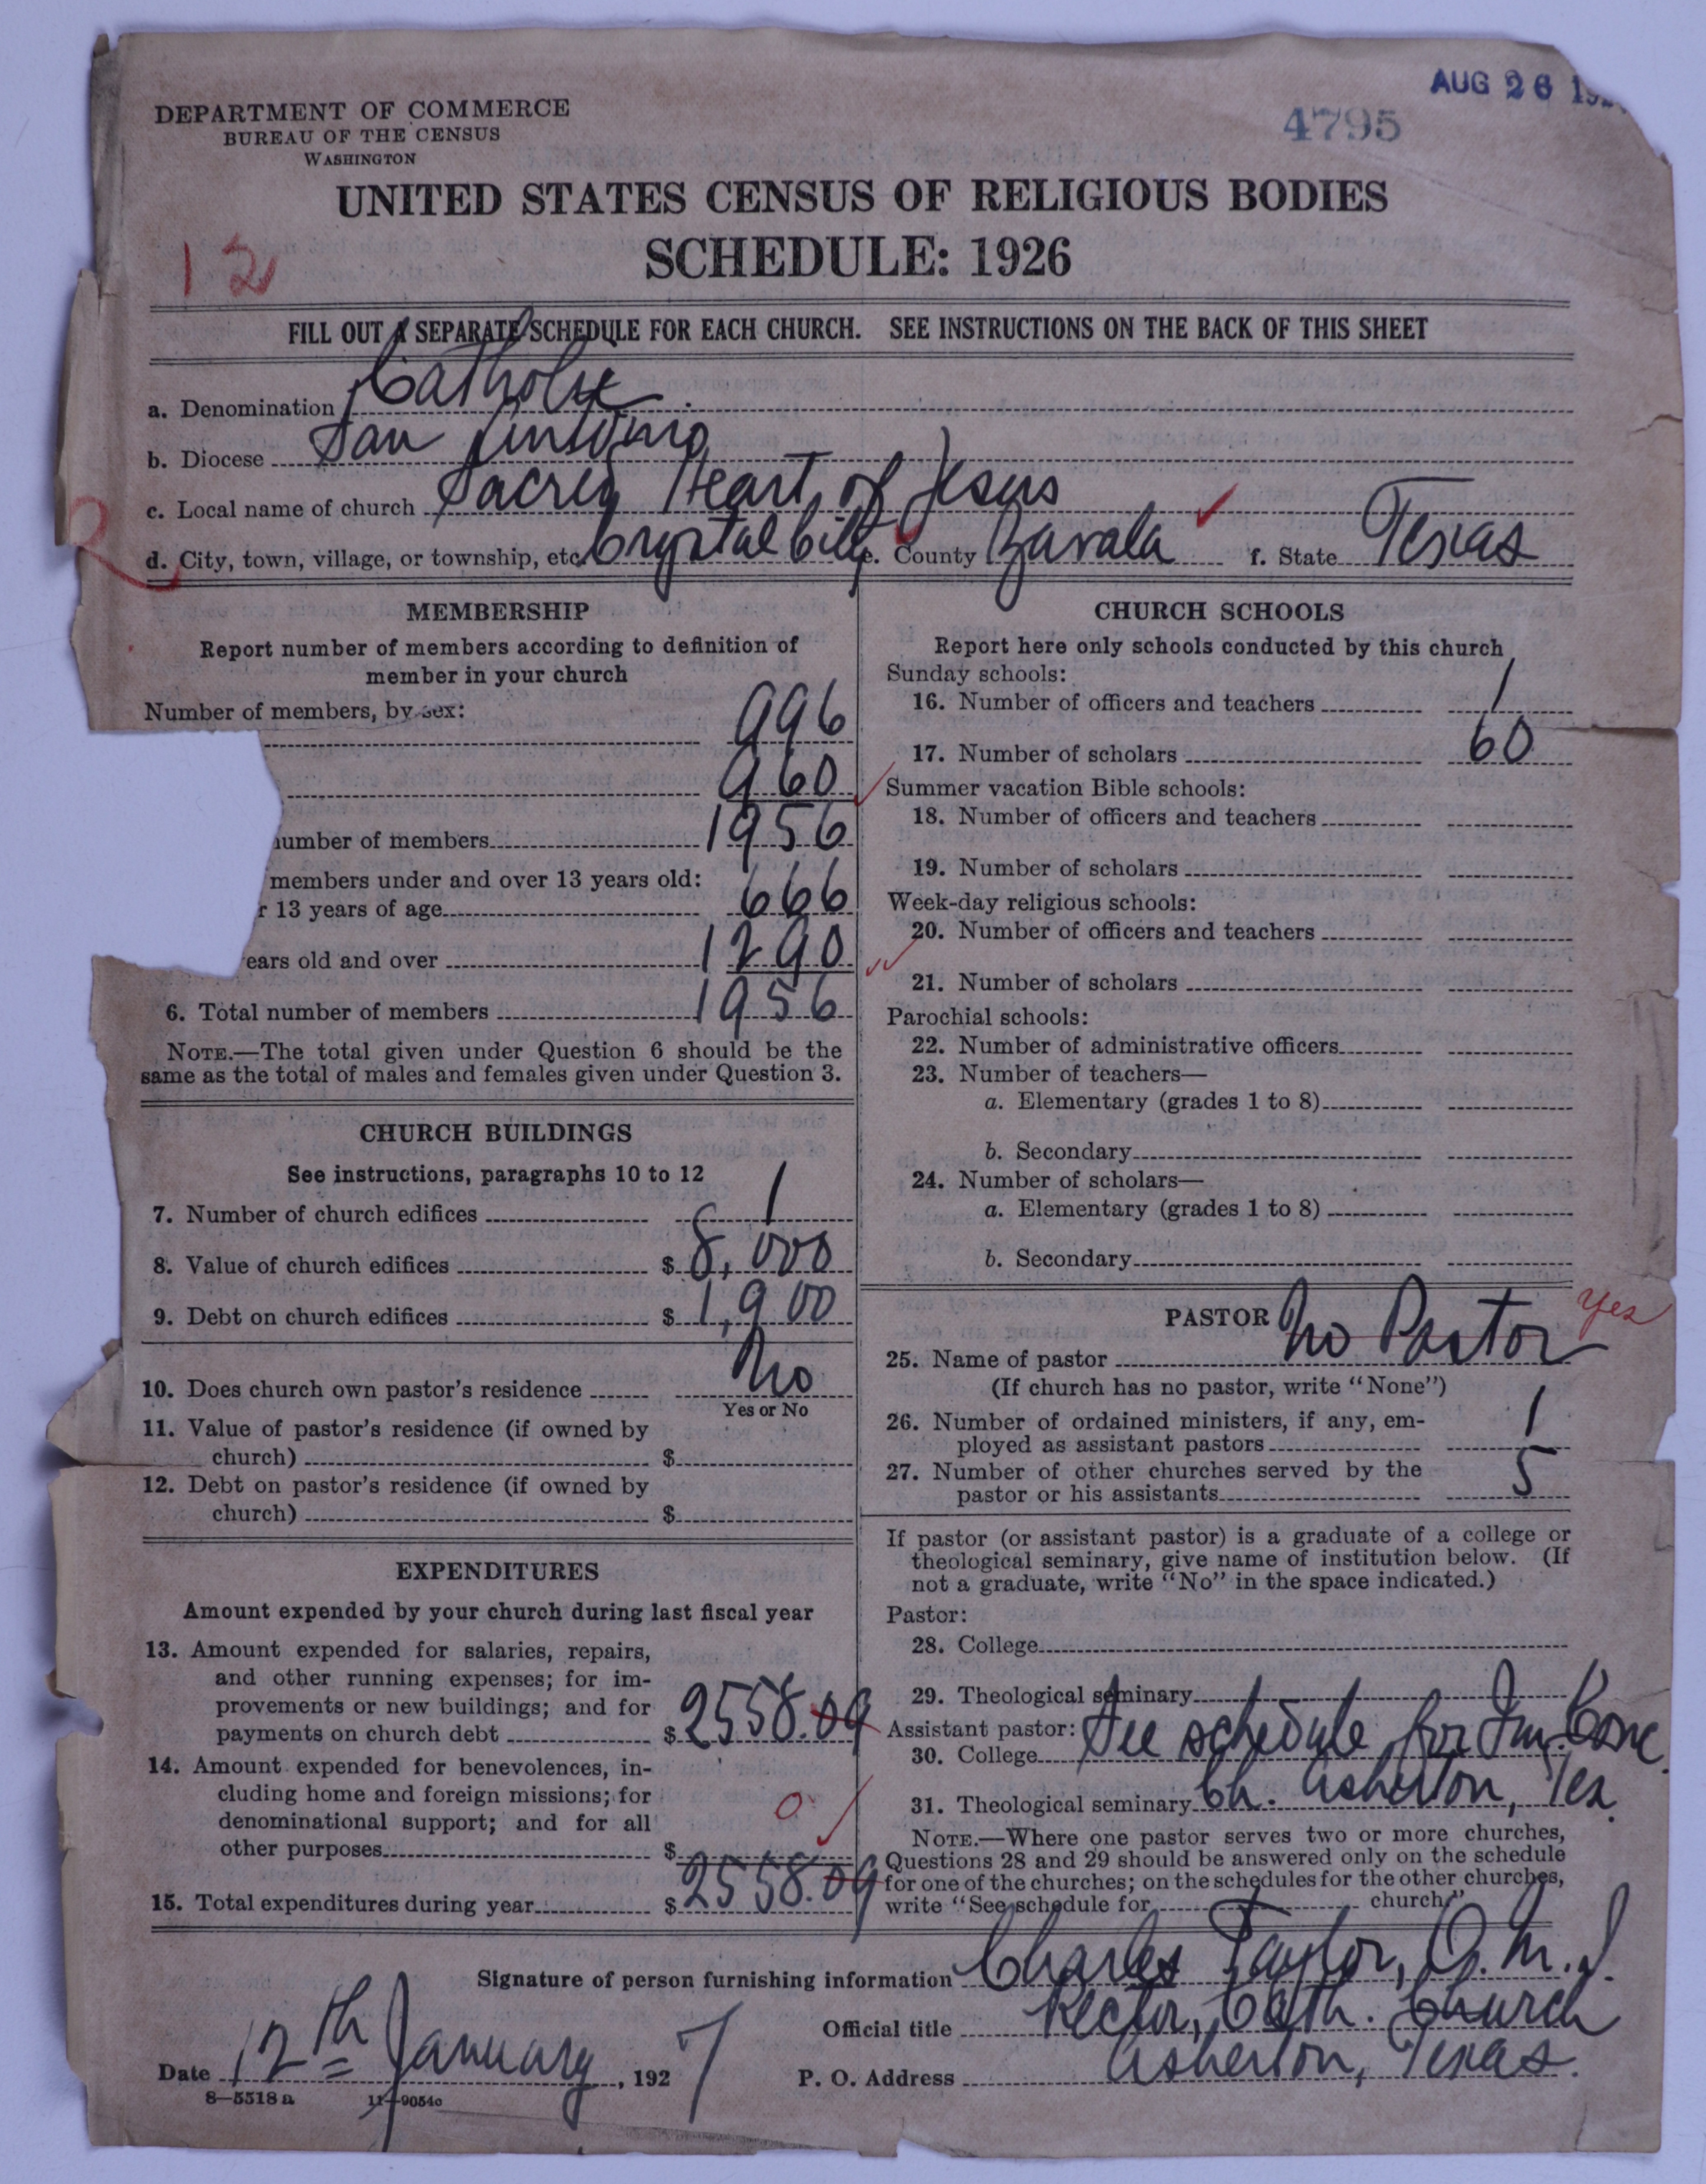 AUG 26 192
4795
DEPARTMENT OF COMMERCE
BUREAU OF THE CENSUS
WASHINGTON
UNITED STATES CENSUS OF RELIGIOUS BODIES
SCHEDULE: 1926
12
FILL OUT A SEPARATE SCHEDULE FOR EACH CHURCH. SEE INSTRUCTIONS ON THE BACK OF THIS SHEET
a. Denomination Catholic
b. Diocese San Antonio
c. Local name of church Sacred Heart of Jesus
d. City, town, village, or township, etc. Crystal City e. County Zavala f. State Texas
MEMBERSHIP
Report number of members according to definition of
member in your church
Number of members, by sex:
996
960
number of members 1956
members under and over 13 years old:
r 13 years of age 666
ears old and over 1290
6. Total number of members 1956
NOTE.—The total given under Question 6 should be the
same as the total of males and females given under Question 3.
CHURCH BUILDINGS
See instructions, paragraphs 10 to 12
7. Number of church edifices 1
8. Value of church edifices $ 8,000
9. Debt on church edifices $ 1,900
10. Does church own pastor's residence No
Yes or No
11. Value of pastor's residence (if owned by
church) $
12. Debt on pastor's residence (if owned by
church) $
EXPENDITURES
Amount expended by your church during last fiscal year
13. Amount expended for salaries, repairs,
and other running expenses; for im-
provements or new buildings; and for
payments on church debt $ 2558.09
14. Amount expended for benevolences, in-
cluding home and foreign missions; for
denominational support; and for all
other purposes $ 0
15. Total expenditures during year $ 2558.09
CHURCH SCHOOLS
Report here only schools conducted by this church
Sunday schools:
16. Number of officers and teachers 1
17. Number of scholars 60
Summer vacation Bible schools:
18. Number of officers and teachers
19. Number of scholars
Week-day religious schools:
20. Number of officers and teachers
21. Number of scholars
Parochial schools:
22. Number of administrative officers
23. Number of teachers—
a. Elementary (grades 1 to 8)
b. Secondary
24. Number of scholars—
a. Elementary (grades 1 to 8)
b. Secondary
PASTOR
yes
25. Name of pastor No Pastor
(If church has no pastor, write "None")
26. Number of ordained ministers, if any, em-
ployed as assistant pastors 1
27. Number of other churches served by the
pastor or his assistants 5
If pastor (or assistant pastor) is a graduate of a college or
theological seminary, give name of institution below. (If
not a graduate, write "No" in the space indicated.)
Pastor:
28. College
29. Theological seminary
Assistant pastor:
30. College See schedule for Im. Conc.
31. Theological seminary Ch. Asherton, Tex.
NOTE.—Where one pastor serves two or more churches,
Questions 28 and 29 should be answered only on the schedule
for one of the churches; on the schedules for the other churches,
write "See schedule for church."
Signature of person furnishing information Charles Taylor, O.M.I.
Official title Rector, Cath. Church
Date 12th January, 1927 P. O. Address Asherton, Texas.
8—5518 a 11—9054c